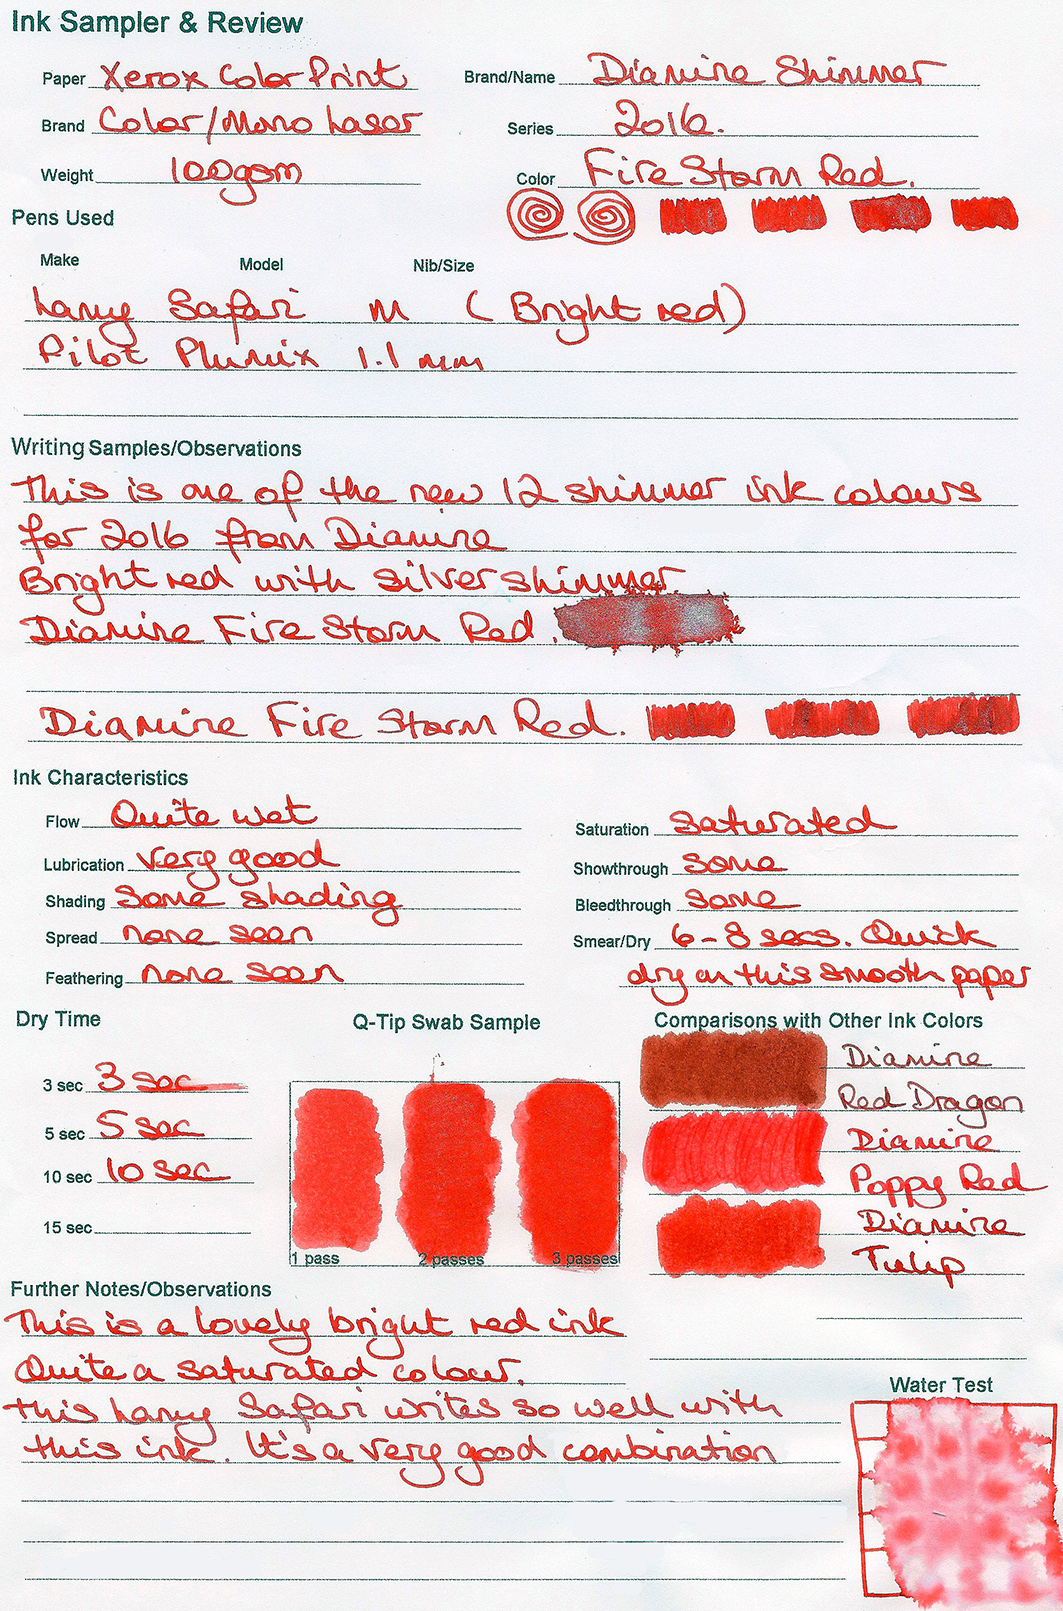 Ink Sampler & Review
Paper Xerox Color Print
Brand/Name Diamine Shimmer
Brand Color/Mono Laser
Series 2016.
Weight 100gsm
Color Fire Storm Red.
Pens Used
Make Model Nib/Size
Lamy Safari M (Bright red)
Pilot Plumix 1.1 mm
Writing Samples/Observations
This is one of the new 12 shimmer ink colours
for 2016 from Diamine
Bright red with silver shimmer
Diamine Fire Storm Red.
Diamine Fire Storm Red.
Ink Characteristics
Flow Quite wet
Saturation saturated
Lubrication very good
Showthrough some
Shading some shading
Bleedthrough some
Spread none seen
Smear/Dry 6-8 secs. Quick
dry on this smooth paper
Feathering none seen
Dry Time
3 sec 3 sec
5 sec 5 sec
10 sec 10 sec
15 sec
Q-Tip Swab Sample
1 pass 2 passes 3 passes
Comparisons with Other Ink Colors
Diamine
Red Dragon
Diamine
Poppy Red
Diamine
Tulip
Further Notes/Observations
This is a lovely bright red ink
Quite a saturated colour.
this Lamy Safari writes so well with
this ink. It's a very good combination
Water Test